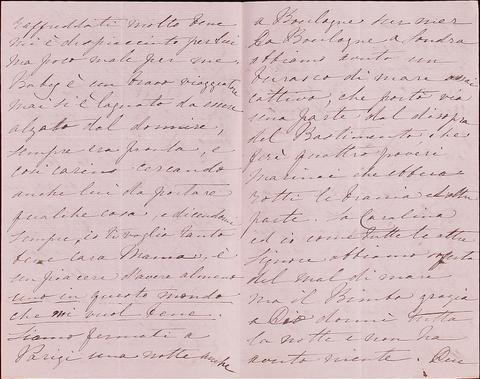 raffreddati molto bene
mi è dispiaciuto per lui
ma poco male per me
Baby è un bravo viaggiatore
mai si è lagnato da essere
alzato dal dormire,
sempre era pronto, e
così carino cercando
anche lui da portare
qualche cosa, e dicendomi
sempre, io ti voglio tanto
bene cara Mamma, è
un piacere d'avere almeno
uno in questo mondo
che mi vuol bene.
Siamo fermati a
Parigi una notte anche
a Boulogne sur mer
Da Boulogne a Londra
abbiamo avuto un
burasco di mare assai
cattivo, che portò via
una parte dal disopra
del Bastimento che
ferì quattro poveri
marinai che ebbero
rotti le braccia ed altre
parte. La Carolina
ed io come tutte le altre
signore abbiamo soferto
del mal di mare
ma il Bimbo grazia
a Dio dormì tutta
la notte e non ha
avuto niente. Due